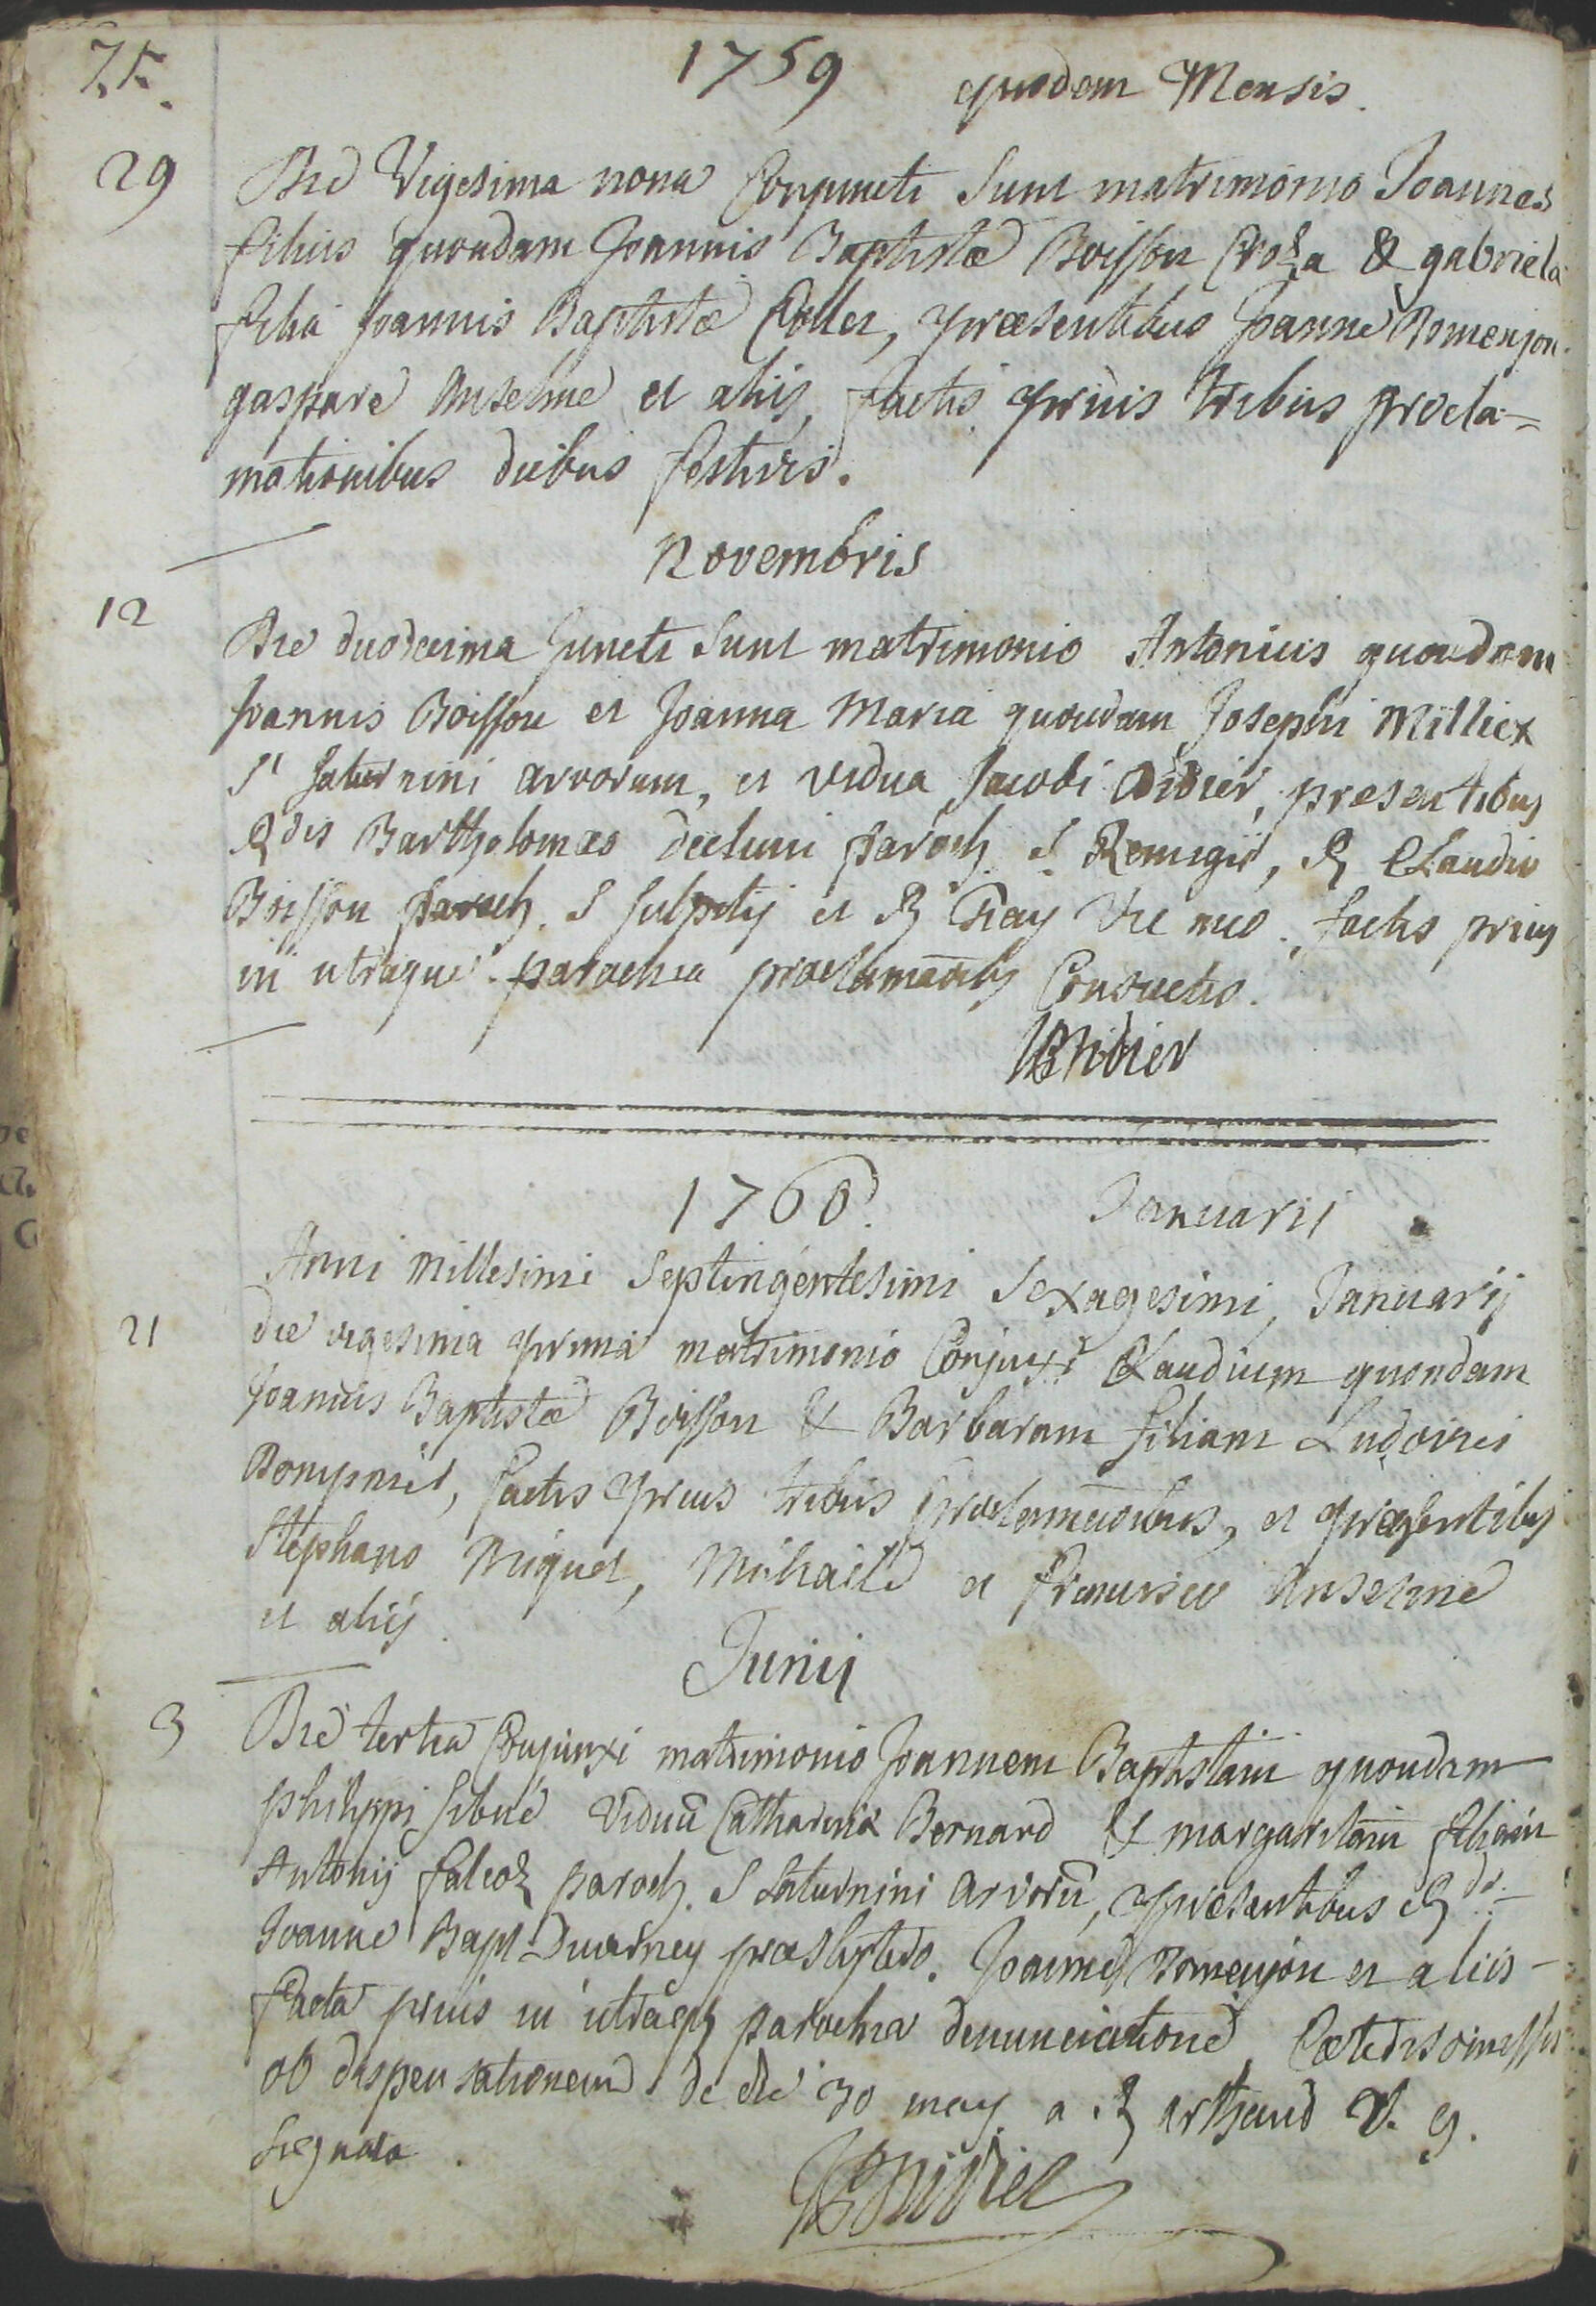 75.
1759 ejusdem Mensis.
29 Die Vigesima nona Conjuncti Sunt matrimonio Joannes
filius quondam Joannis Baptistæ Boisson Croza & gabriela
filia Joannis Baptistæ Collet, præsentibus Joanne Romenjon
gaspare Anselme et aliis, factis prius tribus procla=
mationibus diebus festivis.
Novembris
12 Die duodecima Juncti Sunt matrimonio Antonius quondam
Joannis Boisson et Joanna Maria quondam Josephi Milliex
Sti Saturnini arvorum, et vidua Jacobi Didier, præsentibus
Rdis Bartholomæo paroch. S. Remigii, R Claudio
Boisson paroch. S Sulpitij et R vic meo, factis prius
in utraque parochia proclamaōibus Consuetis.
Didier
1760. Januarii
Anni Millesimi Septingentesimi Sexagesimi, Januarij
21 die vigesima prima matrimonio Conjunxi Claudium quondam
Joannis Baptistæ Boisson & Barbaram filiam Ludovici
factis prius tribus proclamaōibus, et præsentibus
Stephano Miguet, Michaele et francisco Anselme
et aliij.
Junij
3 Die tertia Conjunxi matrimonio Joannem Baptistam quondam
philippi Sibué Viduū Catharinæ Bernard & margaritam filiam
Antonij falcoz paroch. S Saturnini arvorū, præsentibus Rdo
Joanne Bapt Duverney presbytero. Joanne Romenjon et aliis
facta prius in utraqʒ parochia denunciatione Cæteris omissis
ob dispensationem de die 30 may a R arthaud V. g.
Signata.
Didier